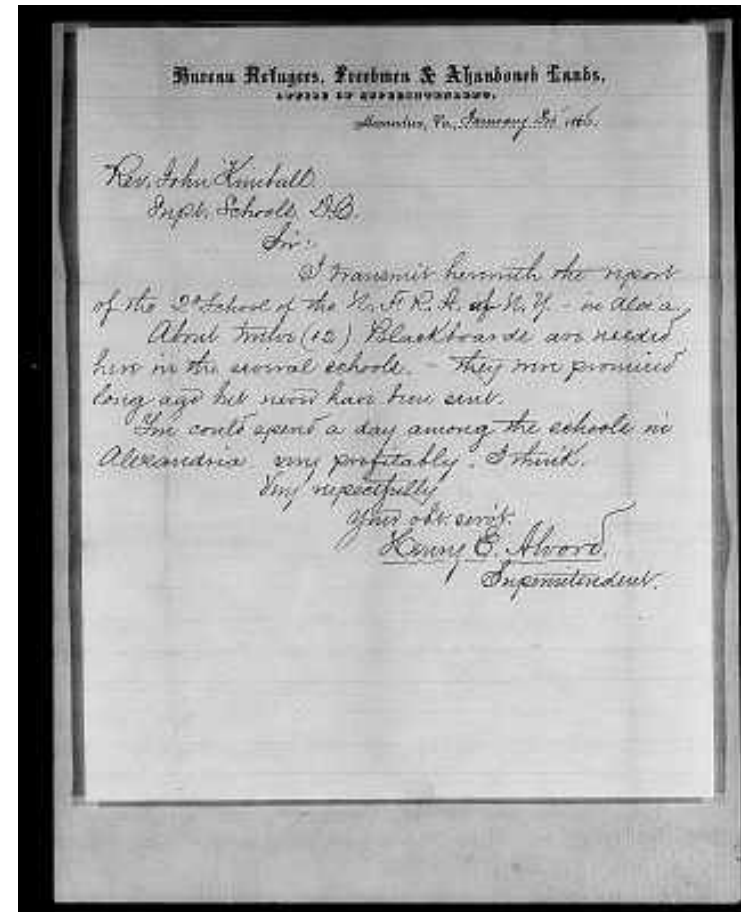 Bureau Refugees, Freedmen & Abandoned Lands,
OFFICE OF SUPERINTENDENT,
Alexandria, Va., January 186.
Rev. John Kimball
Supt. Schools, D.C.
Sir:
I transmit herewith the report
of the 2d School of the N. F. R. A. of N. Y. - in Alexa,
About twelve (12) Blackboards are needed
here in the several schools. - they were promised
long ago but never have been sent.
You could spend a day among the schools in
Alexandria very profitably, I think.
Very respectfully
Your obt. servt.
Henry E. Alvord.
Superintendent.